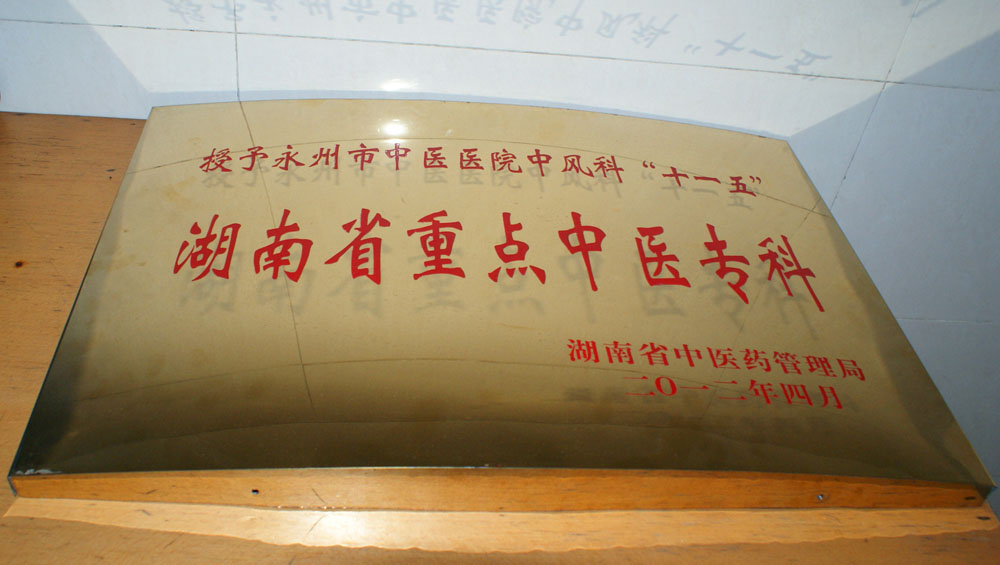 授予永州市中医医院中风科“十一五”
湖南省重点中医专科
湖南省中医药管理局
二〇一二年四月